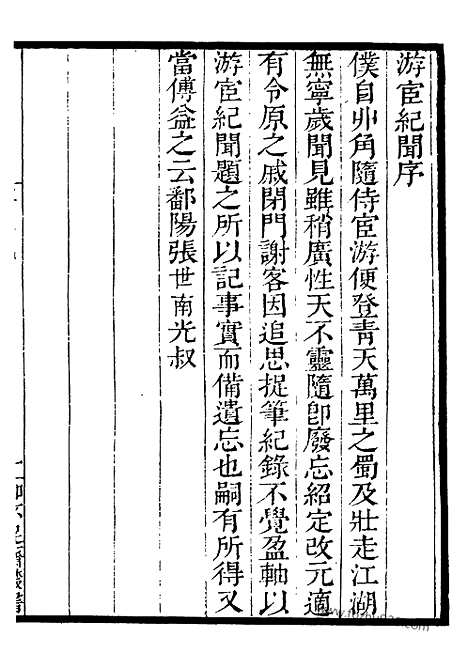 游宦紀聞序
僕自丱角隨侍宦游便登青天萬里之蜀及壯走江湖
無寧歲聞見雖稍廣性天不靈隨卽廢忘紹定改元適
有令原之戚閉門謝客因追思捉筆紀錄不覺盈軸以
游宦紀聞題之所以記事實而備遺忘也嗣有所得又
當傅益之云鄱陽張世南光叔